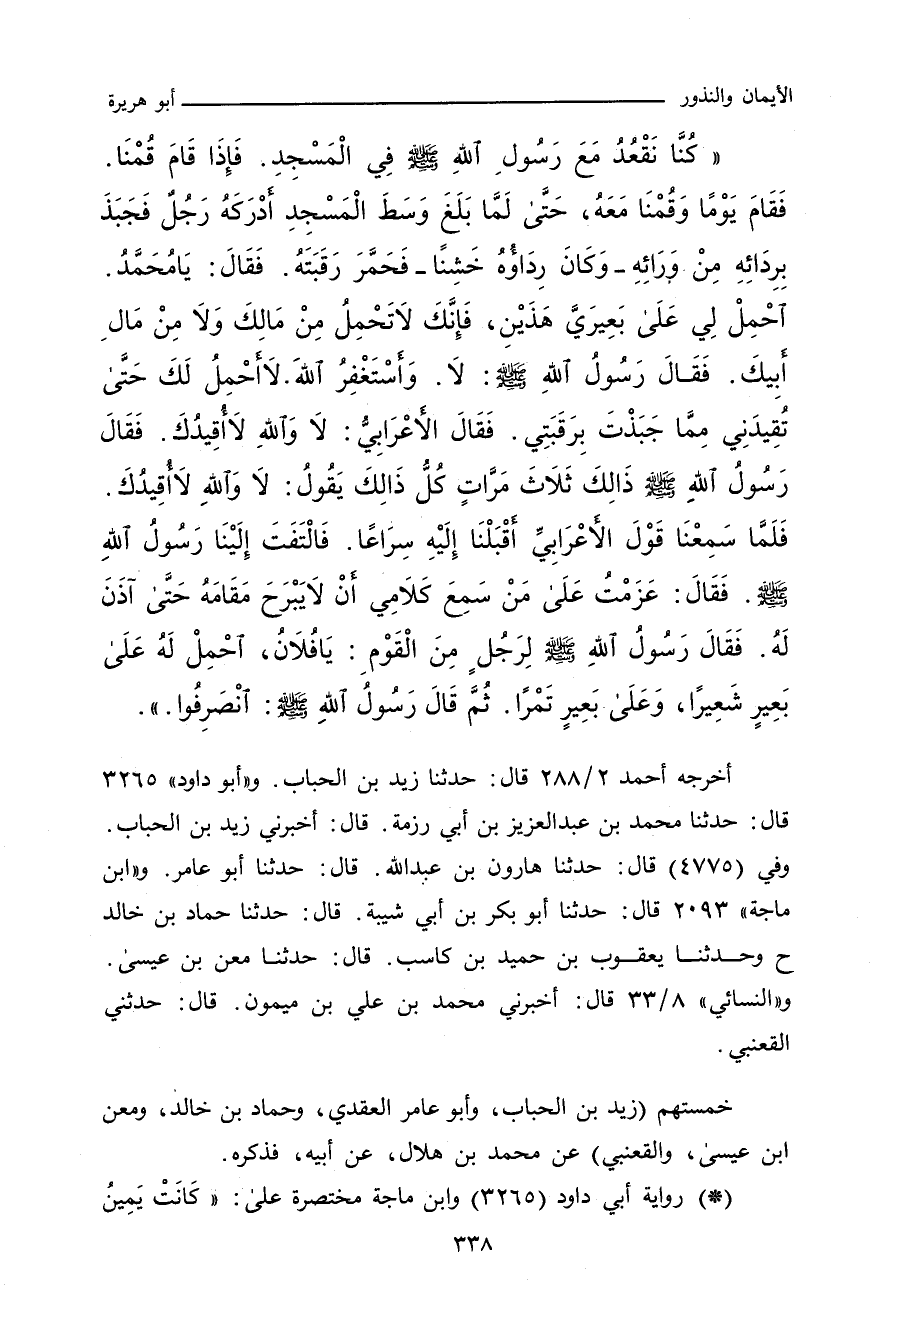 الأيمان والنذور ــــــــــــــــ أبو هريرة
« كُنَّا نَقْعُدُ مَعَ رَسُولِ ٱللهِ ﷺ فِي الْمَسْجِدِ. فَإِذَا قَامَ قُمْنَا.
فَقَامَ يَوْمًا وَقُمْنَا مَعَهُ، حَتَّىٰ لَمَّا بَلَغَ وَسَطَ الْمَسْجِدِ أَدْرَكَهُ رَجُلٌ فَجَبَذَ
بِرِدَائِهِ مِنْ وَرَائِهِ - وَكَانَ رِدَاؤُهُ خَشِنًا - فَحَمَّرَ رَقَبَتَهُ. فَقَالَ: يَامُحَمَّدُ.
ٱحْمِلْ لِي عَلَىٰ بَعِيرَيَّ هَذَيْنِ، فَإِنَّكَ لَاتَحْمِلُ مِنْ مَالِكَ وَلَا مِنْ مَالِ
أَبِيكَ. فَقَـالَ رَسُولُ ٱللهِ ﷺ: لَا. وَأَسْتَغْفِرُ ٱللهَ. لَاأَحْمِلُ لَكَ حَتَّىٰ
تُقِيدَنِي مِمَّا جَبَذْتَ بِرَقَبَتِي. فَقَالَ الأَعْرَابِيُّ: لَا وَٱللهِ لَاأُقِيدُكَ. فَقَالَ
رَسُولُ ٱللهِ ﷺ ذَالِكَ ثَلَاثَ مَرَّاتٍ كُلُّ ذَالِكَ يَقُولُ: لَا وَٱللهِ لَاأُقِيدُكَ.
فَلَمَّا سَمِعْنَا قَوْلَ الأَعْرَابِيِّ أَقْبَلْنَا إِلَيْهِ سِرَاعًا. فَالْتَفَتَ إِلَيْنَا رَسُولُ ٱللهِ
ﷺ. فَقَالَ: عَزَمْتُ عَلَىٰ مَنْ سَمِعَ كَلَامِي أَنْ لَايَبْرَحَ مَقَامَهُ حَتَّىٰ آذَنَ
لَهُ. فَقَالَ رَسُولُ ٱللهِ ﷺ لِرَجُلٍ مِنَ الْقَوْمِ: يَافُلَانُ، ٱحْمِلْ لَهُ عَلَىٰ
بَعِيرٍ شَعِيرًا، وَعَلَىٰ بَعِيرٍ تَمْرًا. ثُمَّ قَالَ رَسُولُ ٱللهِ ﷺ: ٱنْصَرِفُوا.».
أخرجه أحمد ٢/٢٨٨ قال: حدثنا زيد بن الحباب. و«أبو داود» ٣٢٦٥
قال: حدثنا محمد بن عبدالعزيز بن أبي رزمة. قال: أخبرني زيد بن الحباب.
وفي (٤٧٧٥) قال: حدثنا هارون بن عبدالله. قال: حدثنا أبو عامر. و«ابن
ماجة» ٢٠٩٣ قال: حدثنا أبو بكر بن أبي شيبة. قال: حدثنا حماد بن خالد
ح وحـدثنـا يعقـوب بن حميد بن كاسب. قال: حدثنـا معن بن عيسىٰ.
و«النسائي» ٣٣/٨ قال: أخبرني محمد بن علي بن ميمون. قال: حدثني
القعنبي.
خمستهم (زيد بن الحباب، وأبو عامر العقدي، وحماد بن خالد، ومعن
ابن عيسىٰ، والقعنبي) عن محمد بن هلال، عن أبيه، فذكره.
(*) رواية أبي داود (٣٢٦٥) وابن ماجة مختصرة علىٰ: « كَانَتْ يَمِينُ
٣٣٨